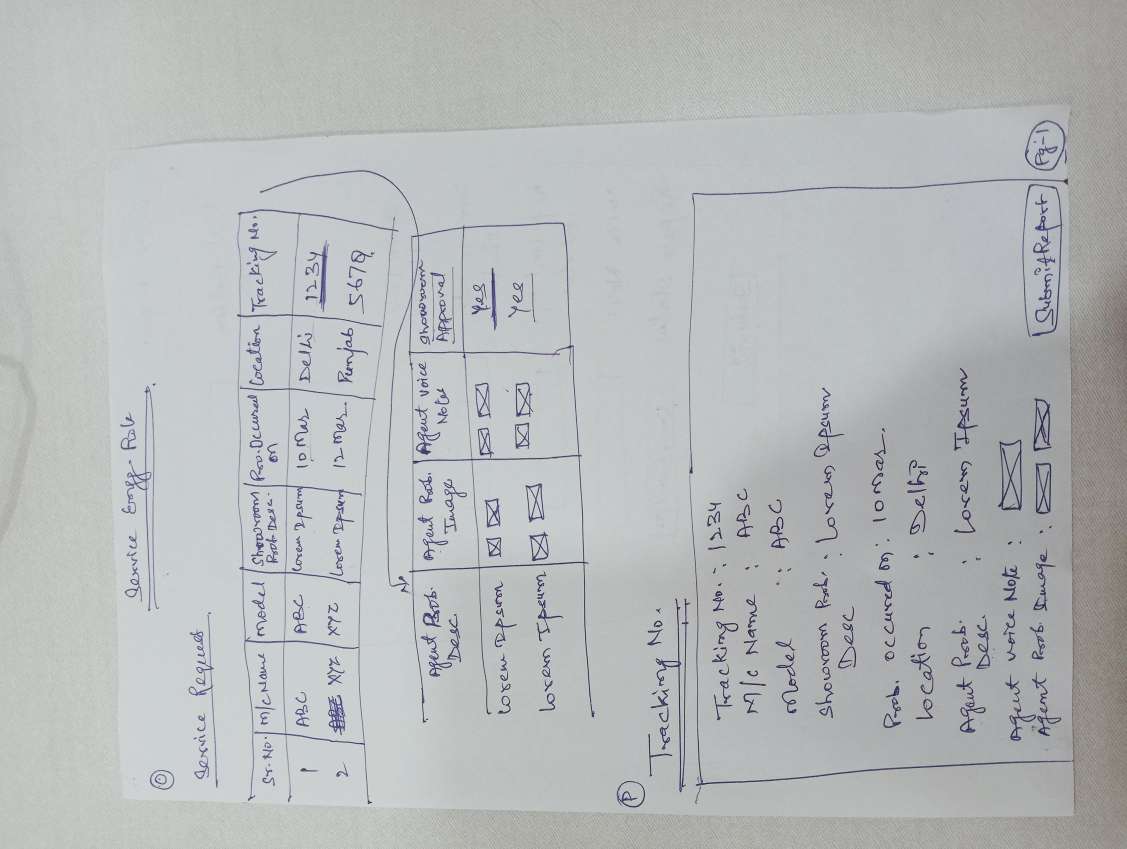 Service Engg. Role
O
Service Request
Sr. No. M/c Name Model Showroom Prob. Desc. Pro. Occured on Location Tracking No.
1 ABC ABC Lorem Ipsum 10 Mar Delhi 1234
2 XYZ XYZ Lorem Ipsum 12 Mar. Punjab 5678
Agent Prob. Desc. Agent Prob. Image Agent Voice Notes Showroom Approval
Lorem Ipsum Yes
Lorem Ipsum Yes
P
Tracking No.
Tracking No. : 1234
M/c Name : ABC
Model : ABC
Showroom Prob. : Lorem Ipsum
Desc
Prob. occured on : 10 Mar.
Location : Delhi
Agent Prob. : Lorem Ipsum
Desc.
Agent Voice Note :
Agent Prob. Image :
Submit Report
Pg-1